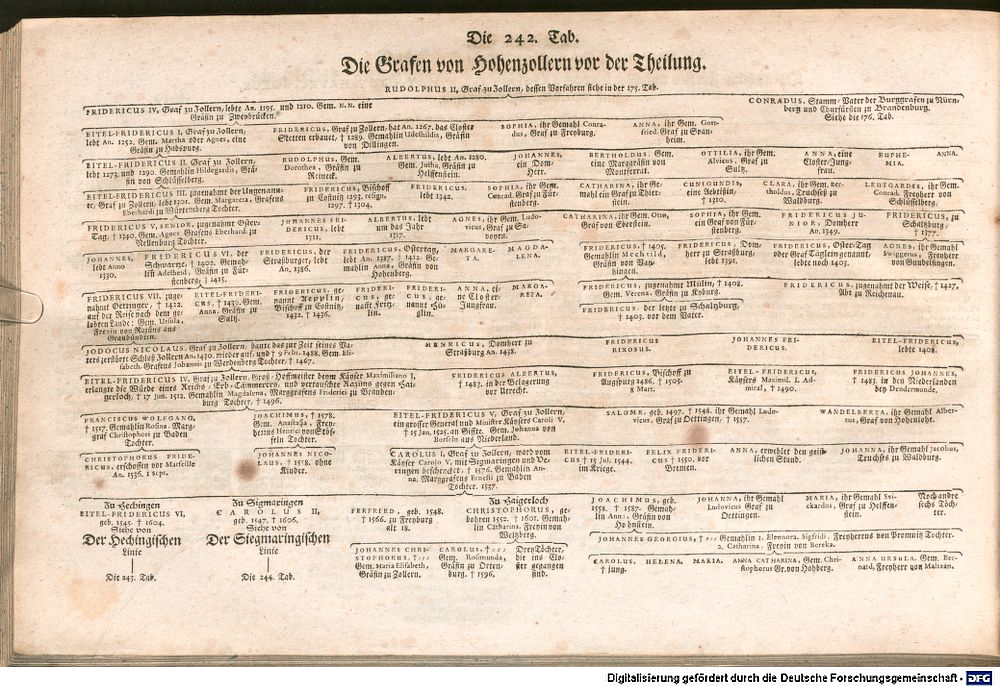 Die 242. Tab.
Die Grafen von Hohenzollern vor der Theilung.
RUDOLPHUS II, Graf zu Zollern, dessen Vorfahren siehe in der 175. Tab.
FRIDERICUS IV, Graf zu Zollern, lebte An. 1195. und 1210. Gem. N.N. eine
Gräfin zu Zweybrücken.
CONRADUS. Stamm-Vater der Burggrafen zu Nürn-
berg und Churfürsten zu Brandenburg.
Siehe die 176. Tab.
EITEL-FRIDERICUS I, Graf zu Zollern,
lebt An. 1252. Gem. Martha oder Agnes, eine
Gräfin zu Habspurg.
FRIDERICUS, Graf zu Zollern, hat An. 1267. das Closter
Stetten erbauet, † 1289. Gemahlin Udelhildis, Gräfin
von Dillingen.
SOPHIA, ihr Gemahl Conra-
dus, Graf zu Freyburg.
ANNA, ihr Gem. Gott-
fried Graf zu Span-
heim.
EITEL-FRIDERICUS II. Graf zu Zollern,
lebt 1273. und 1290. Gemahlin Hildegardis, Grä-
fin von Schlüsselberg.
RUDOLPHUS, Gem.
Dorothea, Gräfin zu
Reineck.
ALBERTUS, lebt An. 1280.
Gem. Jutha, Gräfin zu
Helffenstein.
JOHANNES,
ein Dom-
Herr.
BERTHOLDUS, Gem.
eine Marggräfin von
Montferrat.
OTTILIA, ihr Gem.
Alvicus, Graf zu
Sultz.
ANNA, eine
Closter-Jung-
frau.
EUPHE-
MIA.
ANNA.
EITEL-FRIDERICUS III, zugenahmt der Ungenann-
te, Graf zu Zollern, lebt 1301. Gem. Margareta, Grafens
Eberhardi zu Würtemberg Tochter.
FRIDERICUS, Bischoff
zu Costnitz 1293. resign.
1297. † 1304.
FRIDERICUS,
lebt 1342.
SOPHIA, ihr Gem.
Conrad, Graf zu Für-
stenberg.
CATHARINA, ihr Ge-
mahl ein Graf zu Thier-
stein.
CUNIGUNDIS,
eine Aebtißin,
† 1310.
CLARA, ihr Gem. Ber-
tholdus, Truchseß zu
Waldburg.
LEUTGARDIS, ihr Gem.
Conrad, Freyherr von
Schlüsselberg.
FRIDERICUS V, SENIOR, zugenahmt Oster-
Tag, † 1340. Gem. Agnes Grafens Eberhard zu
Nellenburg Tochter.
JOHANNES FRI-
DERICUS, lebt
1311.
ALBERTUS, lebt
um das Jahr
1317.
AGNES, ihr Gem. Ludo-
vicus, Graf zu Sa-
voyen.
CATHARINA, ihr Gem. Otto,
Graf von Eberstein.
SOPHIA, ihr Gem.
ein Graf von Für-
stenberg.
FRIDERICUS JU-
NIOR, Domherr
An. 1349.
FRIDERICUS, zu
Schaltzburg,
† 1377.
JOHANNES,
lebt Anno
1330.
FRIDERICUS VI. der
Schwartze, † 1402. Gemah-
lin Adelheid, Gräfin zu Für-
stenberg, † 1415.
FRIDERICUS, der
Straßburger, lebt
An. 1386.
FRIDERICUS, Ostertag,
lebt An. 1387. † 1412. Ge-
mahlin Anna, Gräfin von
Hohenberg.
MARGARE-
TA.
MAGDA-
LENA.
FRIDERICUS, † 1405.
Gemahlin Mechtild,
Gräfin von Vay-
hingen.
FRIDERICUS, Dom-
herr zu Straßburg,
lebt 1391.
FRIDERICUS, Oster-Tag
oder Graf Täglein genannt,
lebte noch 1403.
AGNES, ihr Gemahl
Swiggerus, Freyherr
von Gundelfingen.
FRIDERICUS VII, zuge-
nahmt Oettinger, † 1422.
auf der Reise nach dem ge-
lobten Lande; Gem. Ursula,
Freyin von Razüns aus
Graubündten.
EITEL-FRIDERI-
CUS, † 1439. Gem.
Anna, Gräfin zu
Sultz.
FRIDERICUS, ge-
nannt Aepplin,
Bischoff zu Costnitz,
1432. † 1436.
FRIDERI-
CUS, ge-
nannt Fritz-
lin.
FRIDERI-
CUS, ge-
nannt Hül-
glin.
ANNA, ei-
ne Closter-
Jungfrau.
MARGA-
RETA.
FRIDERICUS, zugenahmt Mülin, † 1408.
Gem. Verena, Gräfin zu Kyburg.
FRIDERICUS, zugenahmt der Weise, † 1427,
Abt zu Reichenau.
FRIDERICUS, der letzte zu Schaltzburg,
† 1403. vor dem Vater.
JODOCUS NICOLAUS, Graf zu Zollern, bauete das zur Zeit seines Va-
ters zerstörte Schloß Zollern An. 1430. wieder auf, und † 9 Febr. 1488. Gem. Eli-
sabeth, Grafens Johannis zu Werdenberg Tochter, † 1467.
HENRICUS, Domherr zu
Straßburg An. 1438.
FRIDERICUS
RIXOSUS.
JOHANNES FRI-
DERICUS.
EITEL-FRIDERICUS,
lebte 1408.
EITEL-FRIDERICUS IV. Graf zu Zollern, Groß-Hoffmeister beym Käyser Maximiliano I,
erlangte die Würde eines Reichs-Erb-Cämmerers, und vertauschte Razüns gegen Hai-
gerloch, † 17 Jun. 1512. Gemahlin Magdalena, Marggrafens Friderici zu Branden-
burg Tochter, † 1496.
FRIDERICUS ALBERTUS,
† 1483. in der Belagerung
vor Utrecht.
FRIDERICUS, Bischoff zu
Augspurg 1486. † 1505.
8 Mart.
EITEL-FRIDERICUS,
Käysers Maximil. I. Ad-
miral, † 1490.
FRIDERICUS JOHANNES,
† 1483. in den Niederlanden
bey Dendermonde.
FRANCISCUS WOLFGANG,
† 1517. Gemahlin Rosina, Marg-
graf Christophori zu Baden
Tochter.
JOACHIMUS, † 1578.
Gem. Anastasia, Frey-
herrns Henrici von Stöf-
feln Tochter.
EITEL-FRIDERICUS V, Graf zu Zollern,
ein grosser General und Ministre Käysers Caroli V,
† 15 Jan. 1525. an Giffte. Gem. Johanna von
Borselen aus Niederland.
SALOME, geb. 1497. † 1548. ihr Gemahl Ludo-
vicus, Graf zu Oettingen, † 1557.
WANDELBERTA, ihr Gemahl Alber-
tus, Graf von Hohenlohe.
CHRISTOPHORUS FRIDE-
RICUS, erschossen vor Marseille
An. 1536. 1 Sept.
JOHANNES NICO-
LAUS, † 1558. ohne
Kinder.
CAROLUS I, Graf zu Zollern, ward vom
Käyser Carolo V. mit Sigmaringen und Ve-
ringen beschencket, † 1576. Gemahlin An-
na, Marggrafens Ernesti zu Baden
Tochter. 1537.
EITEL-FRIDERI-
CUS † 15 Jul. 1544.
im Kriege.
FELIX FRIDERI-
CUS † 1550. vor
Bremen.
ANNA, erwehlet den geist-
lichen Stand.
JOHANNA, ihr Gemahl Jacobus,
Truchseß zu Waldburg.
Zu Hechingen
EITEL-FRIDERICUS VI,
geb. 1545. † 1604.
Siehe von
Der Hechingischen
Linie
Die 243. Tab.
Zu Sigmaringen
CAROLUS II,
geb. 1547. † 1606,
Siehe von
Der Siegmaringischen
Linie
Die 244. Tab.
FERFRIED, geb. 1548.
† 1566. zu Freyburg
alt 18.
Zu Haigerloch
CHRISTOPHORUS, ge-
bohren 1552. † 1601. Gemah-
lin Catharina, Freyin von
Weltzberg.
JOACHIMUS, geb.
1558. † 1587. Gemah-
lin Anna, Gräfin von
Hohnstein.
JOHANNA, ihr Gemahl
Ludovicus Graf zu
Oettingen.
MARIA, ihr Gemahl Svi-
ckardus, Graf zu Helffen-
stein.
Noch andre
sechs Töch-
ter.
JOHANNES CHRI-
STOPHORUS. † ...
Gem. Maria Elisabeth,
Gräfin zu Zollern.
CAROLUS. † ...
Gem. Rosimunda,
Gräfin zu Orten-
burg. † 1596.
Drey Töchter,
die ins Clo-
ster gegangen
sind.
JOHANNES GEORGIUS, † ... Gemahlin 1. Eleonora, Sigfridi, Freyherrns von Promnitz Tochter.
2. Catharina, Freyin von Bereka.
CAROLUS,
† jung.
HELENA.
MARIA.
ANNA CATHARINA, Gem. Chri-
stophorus Gr. von Hohberg.
ANNA URSULA, Gem. Ber-
nard, Freyherr von Maltzan.
Digitalisierung gefördert durch die Deutsche Forschungsgemeinschaft - DFG